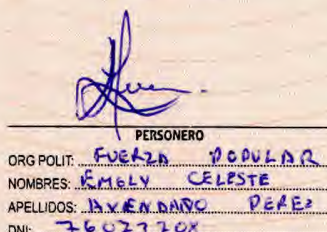 PERSONERO
ORG POLIT: FUERZA POPULAR
NOMBRES: EMELY CELESTE
APELLIDOS: AVENDAÑO PEREZ
DNI: